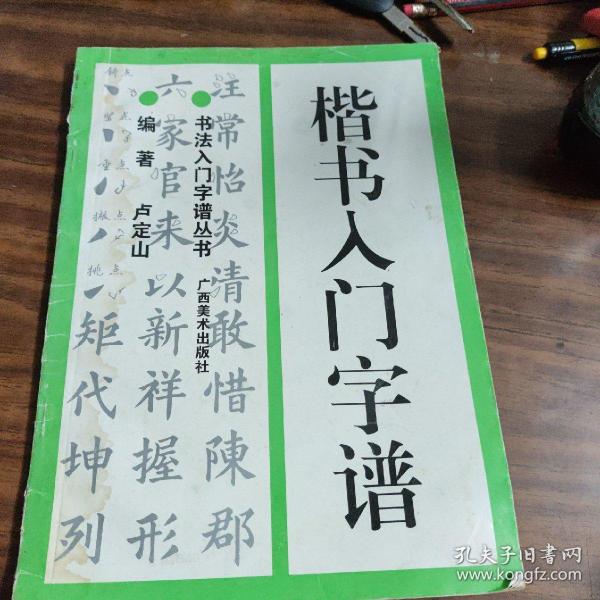 楷书入门字谱
书法入门字谱丛书
广西美术出版社
编著 卢定山
注常怡炎清敢惜陳郡
六家官来以新祥握形
斜点
垂点
挑点
矩代坤列
孔夫子旧書网
www.kongfz.com